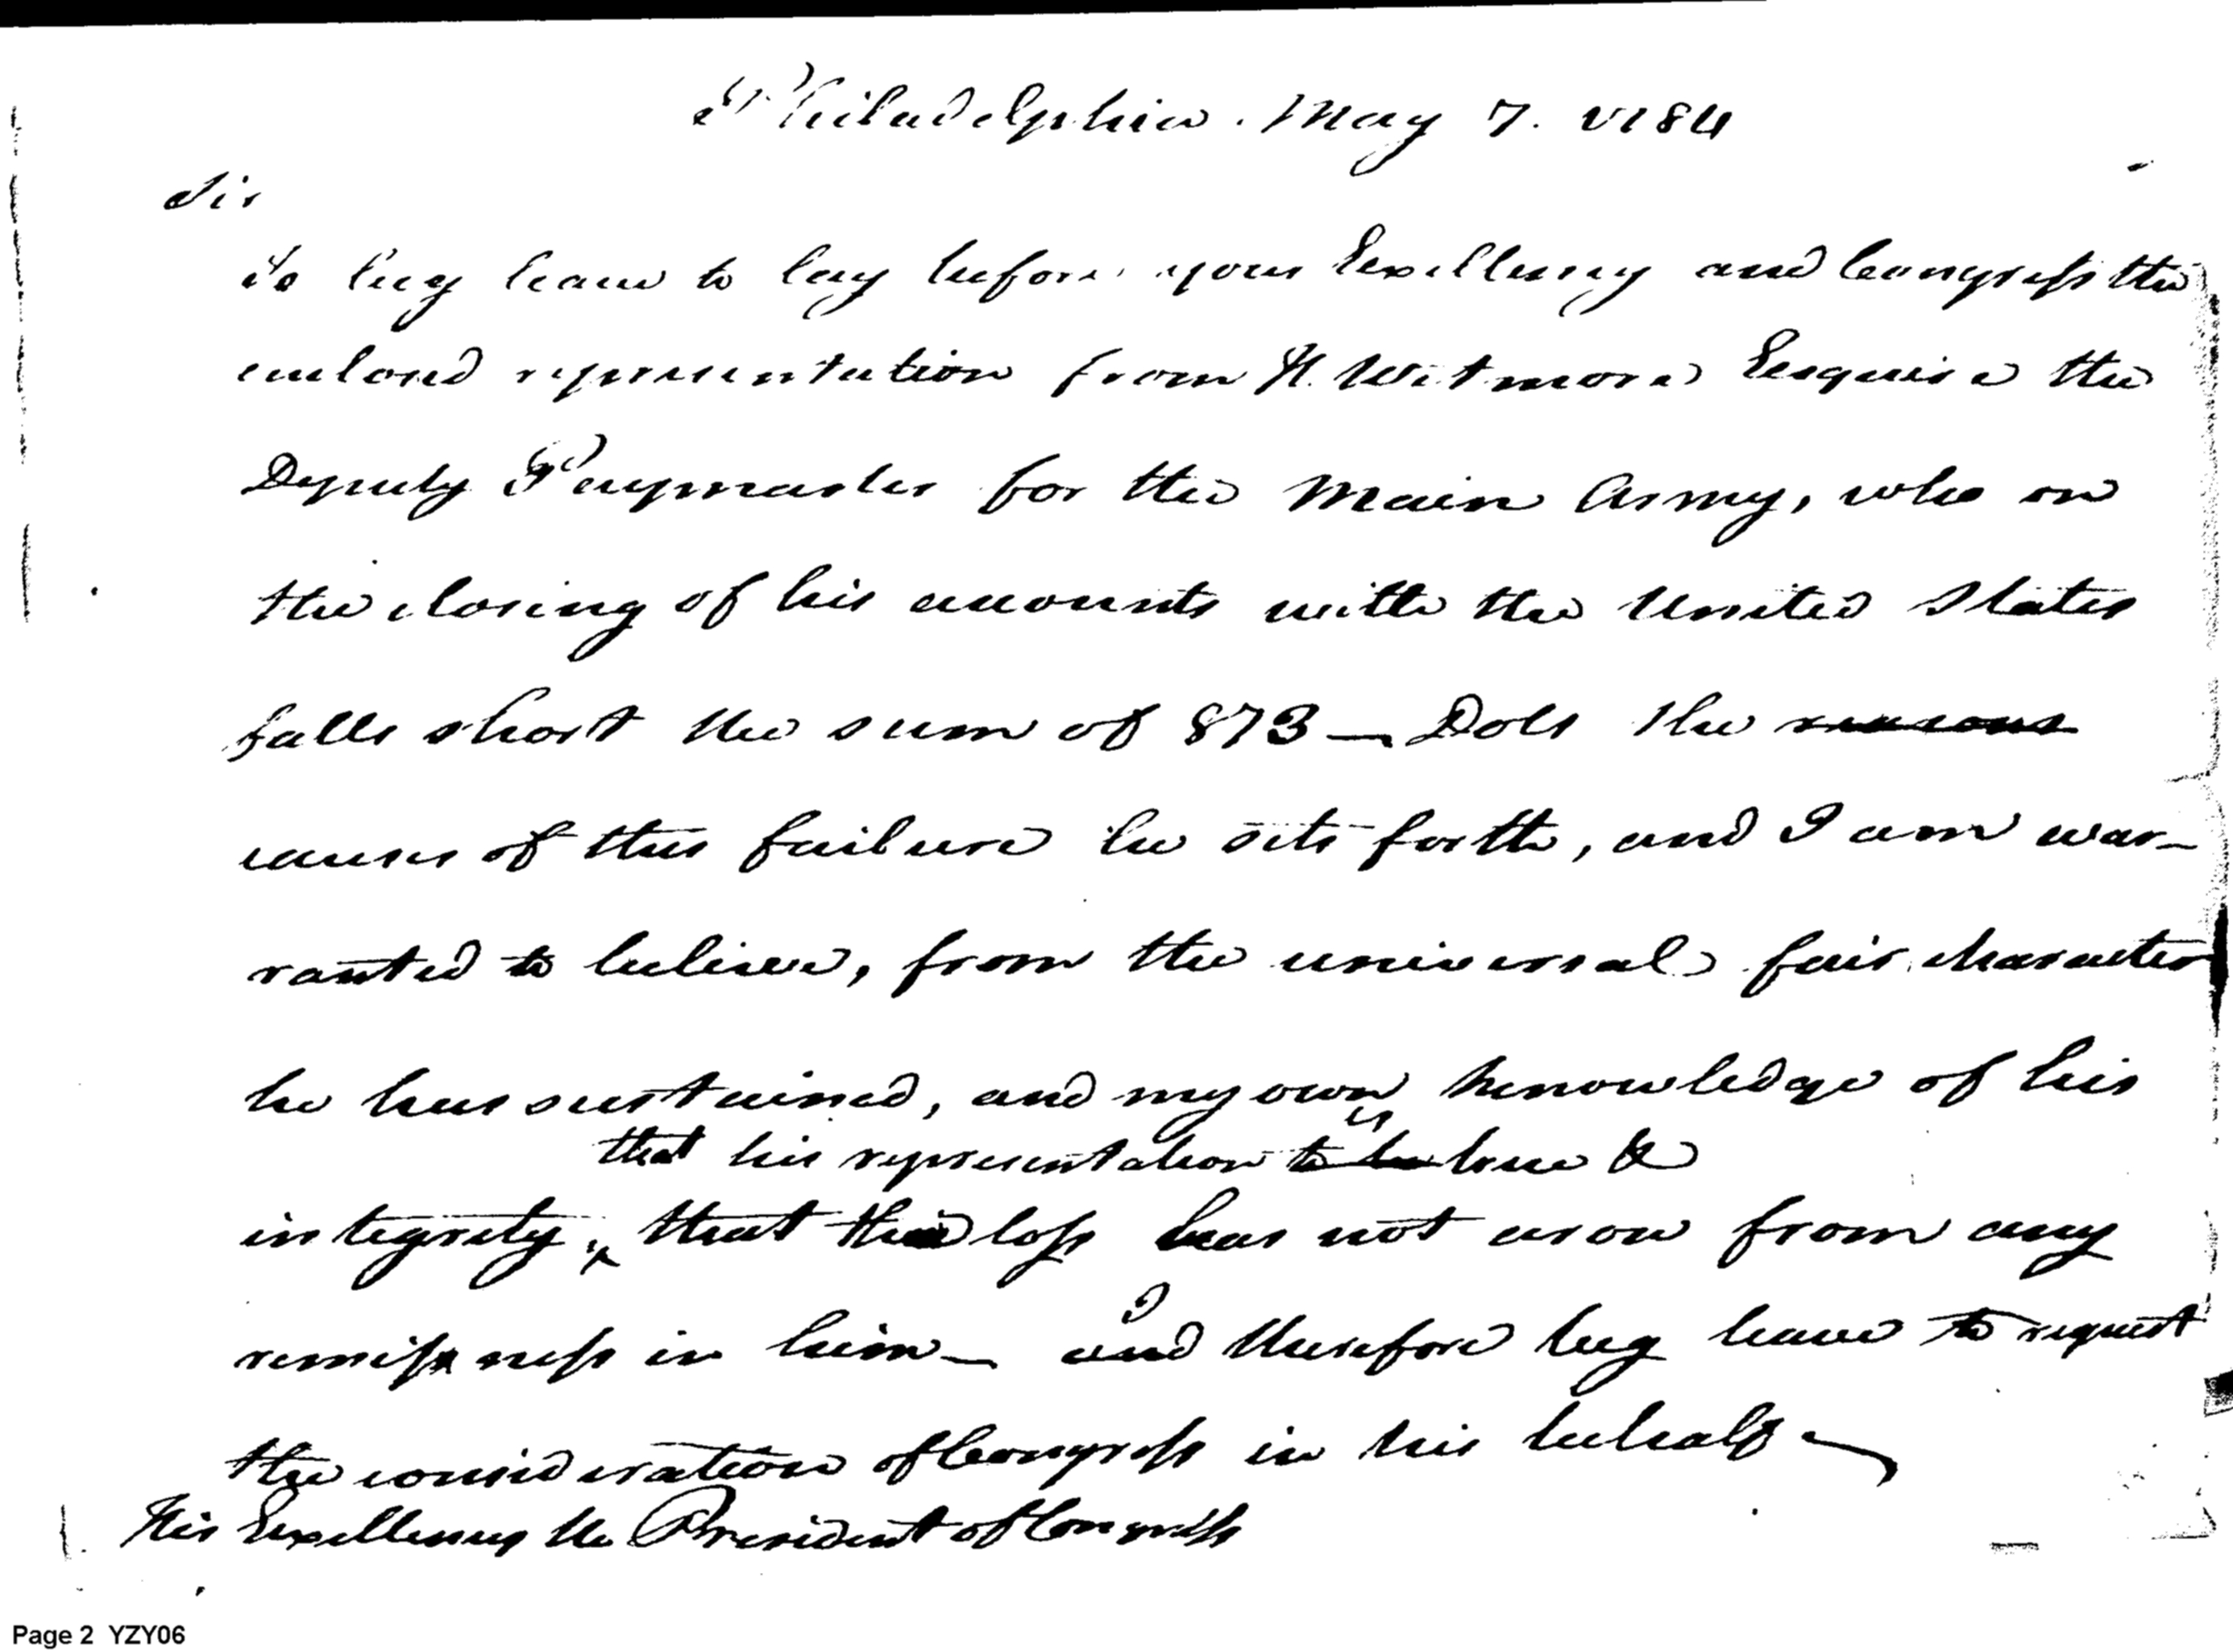 Philadelphia. May 7. 1784
Sir
I beg leave to lay before your Excellency and Congress the
enclosed representation from H. Wetmore Esquire the
Deputy Paymaster for the Main Army, who on
the closing of his accounts with the United States
falls short the sum of 873 — Dols the reasons
causes of this failure he sets forth, and I am war-
ranted to believe, from the universal fair character
he has sustained, and my own knowledge of his
is
that his representation to be true &
integrity, that this loss has not arose from any
I
remissness in him — and therefore beg leave to request
the consideration of Congress in his behalf —
His Excellency the President of Congress
Page 2 YZY06